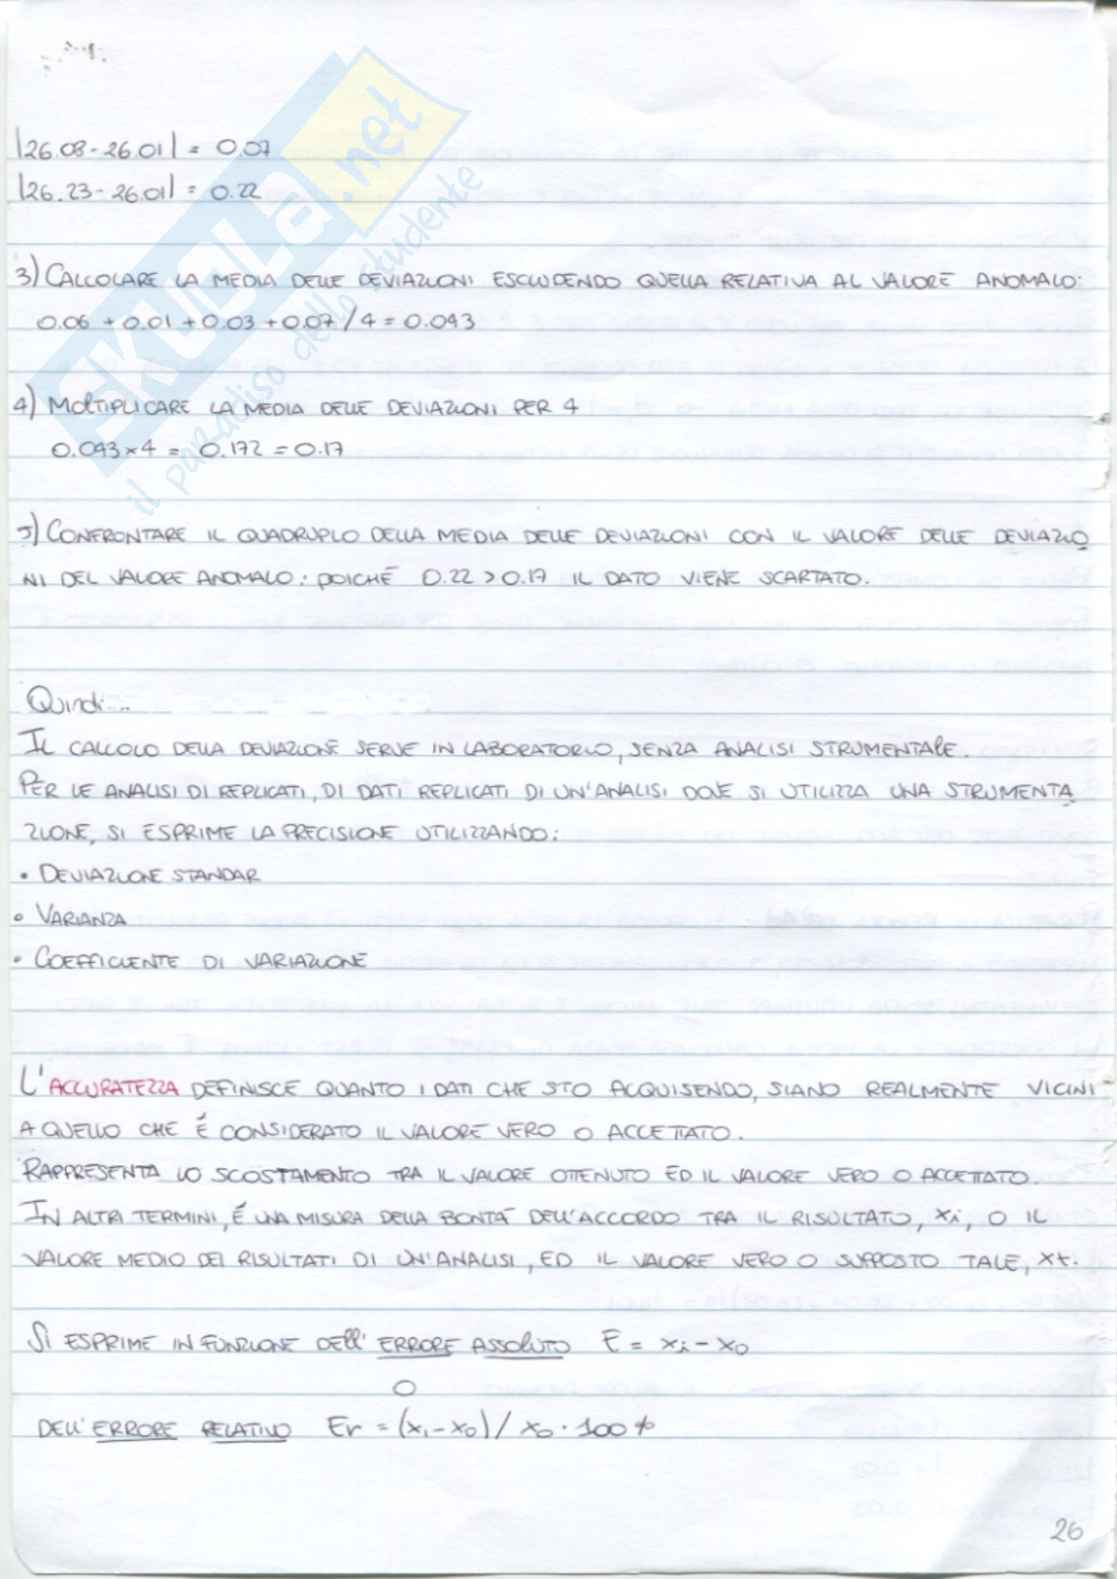 |26.08-26.01| = 0.07
|26.23-26.01| = 0.22
SKUOLA.net
il paradiso dello studente
3) CALCOLARE LA MEDIA DELLE DEVIAZIONI ESCLUDENDO QUELLA RELATIVA AL VALORE ANOMALO:
0.06 + 0.01 + 0.03 + 0.07 / 4 = 0.043
4) MOLTIPLICARE LA MEDIA DELLE DEVIAZIONI PER 4
0.043 x 4 = 0.172 = 0.17
5) CONFRONTARE IL QUADRUPLO DELLA MEDIA DELLE DEVIAZIONI CON IL VALORE DELLE DEVIAZIO
NI DEL VALORE ANOMALO: POICHÉ 0.22 > 0.17 IL DATO VIENE SCARTATO.
Quindi...
IL CALCOLO DELLA DEVIAZIONE SERVE IN LABORATORIO, SENZA ANALISI STRUMENTALE.
PER LE ANALISI DI REPLICATI, DI DATI REPLICATI DI UN'ANALISI DOVE SI UTILIZZA UNA STRUMENTA
ZIONE, SI ESPRIME LA PRECISIONE UTILIZZANDO:
• DEVIAZIONE STANDAR
• VARIANZA
• COEFFICIENTE DI VARIAZIONE
L'ACCURATEZZA DEFINISCE QUANTO I DATI CHE STO ACQUISENDO, SIANO REALMENTE VICINI
A QUELLO CHE É CONSIDERATO IL VALORE VERO O ACCETTATO.
RAPPRESENTA LO SCOSTAMENTO TRA IL VALORE OTTENUTO ED IL VALORE VERO O ACCETTATO.
IN ALTRI TERMINI, É UNA MISURA DELLA BONTA' DELL'ACCORDO TRA IL RISULTATO, xi, O IL
VALORE MEDIO DEI RISULTATI DI UN'ANALISI, ED IL VALORE VERO O SUPPOSTO TALE, xt.
SI ESPRIME IN FUNZIONE DELL' ERRORE ASSOLUTO E = xi - x0
O
DELL'ERRORE RELATIVO Er = (xi - x0) / x0 · 100 %
26